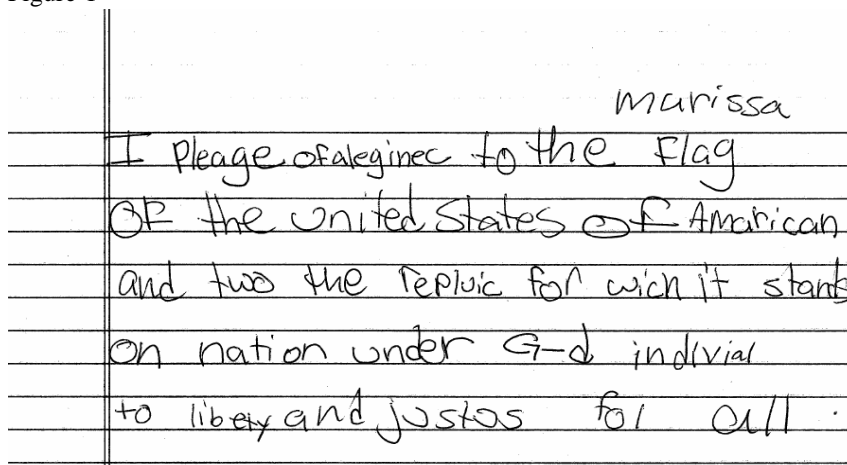 marissa
I Pleage ofaleginec to the Flag
OF the United States of Amarican
and two the repluic for wich it stands
on nation under G-d indivial
to libety and justos for all.